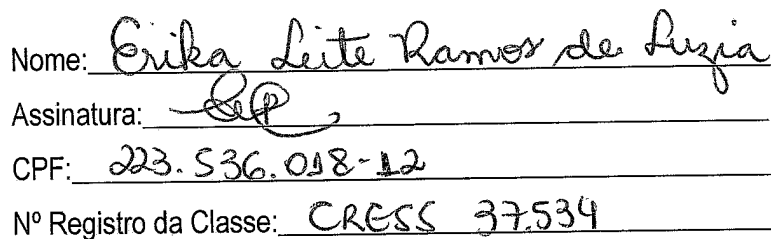 Nome: Erika Leite Ramos de Luzia
Assinatura:
CPF: 223.536.018-12
Nº Registro da Classe: CRESS 37.534